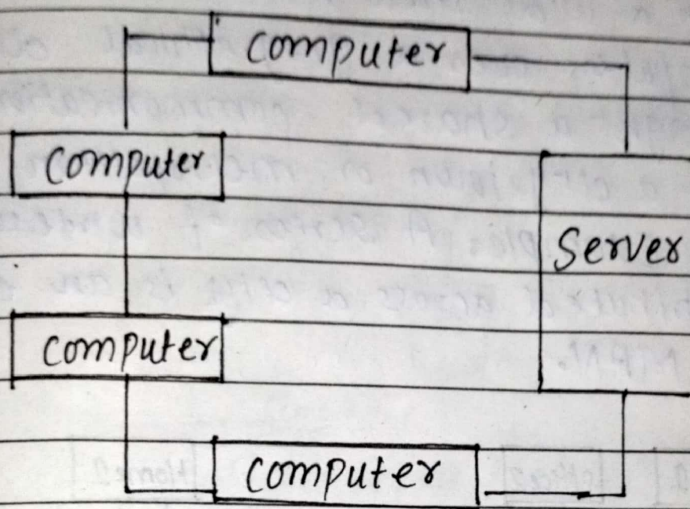 Computer
Computer
Server
Computer
Computer